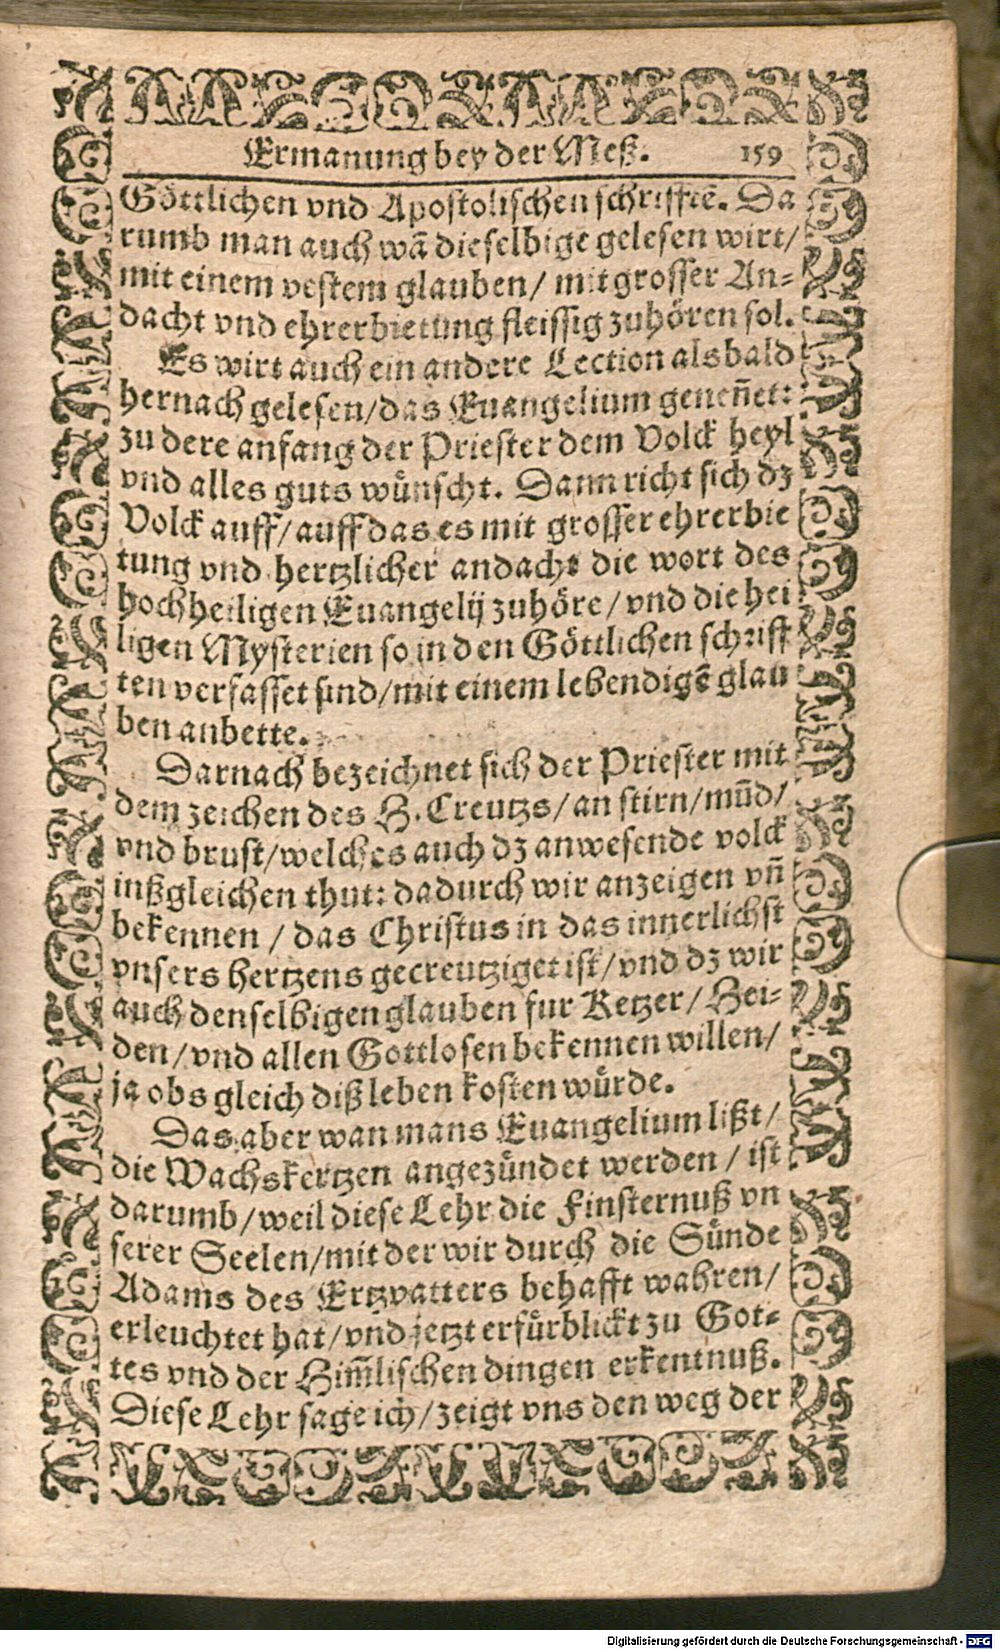 Ermanung bey der Meß. 159
Göttlichen vnd Apostolischen schrifftẽ. Da
rumb man auch wã dieselbige gelesen wirt/
mit einem vestem glauben/ mit grosser An-
dacht vnd ehrerbietung fleissig zuhören sol.
Es wirt auch ein andere Lection alsbald
hernach gelesen/das Euangelium genen̄et:
zu dere anfang der Priester dem Volck heyl
vnd alles guts wünscht. Dann richt sich dz
Volck auff/auff das es mit grosser ehrerbie
tung vnd hertzlicher andacht die wort des
hochheiligen Euangelij zuhöre/vnd die hei
ligen Mysterien so in den Göttlichen schriff
ten verfasset sind/mit einem lebendigẽ glau
ben anbette.
Darnach bezeichnet sich der Priester mit
dem zeichen des H. Creutzs/an stirn/mūd/
vnd brust/welches auch dz anwesende volck
inßgleichen thut: dadurch wir anzeigen vn̄
bekennen / das Christus in das innerlichst
vnsers hertzens gecreutziget ist/vnd dz wir
auch denselbigen glauben fur Ketzer/Hei-
den/vnd allen Gottlosen bekennen willen/
ja obs gleich diß leben kosten würde.
Das aber wan mans Euangelium lißt/
die Wachskertzen angezündet werden / ist
darumb/weil diese Lehr die Finsternuß vn
serer Seelen/mit der wir durch die Sünde
Adams des Ertzvatters behafft wahren/
erleuchtet hat/vnd jetzt erfürblickt zu Got-
tes vnd der Him̄lischen dingen erkentnuß.
Diese Lehr sage ich/zeigt vns den weg der
Digitalisierung gefördert durch die Deutsche Forschungsgemeinschaft - DFG